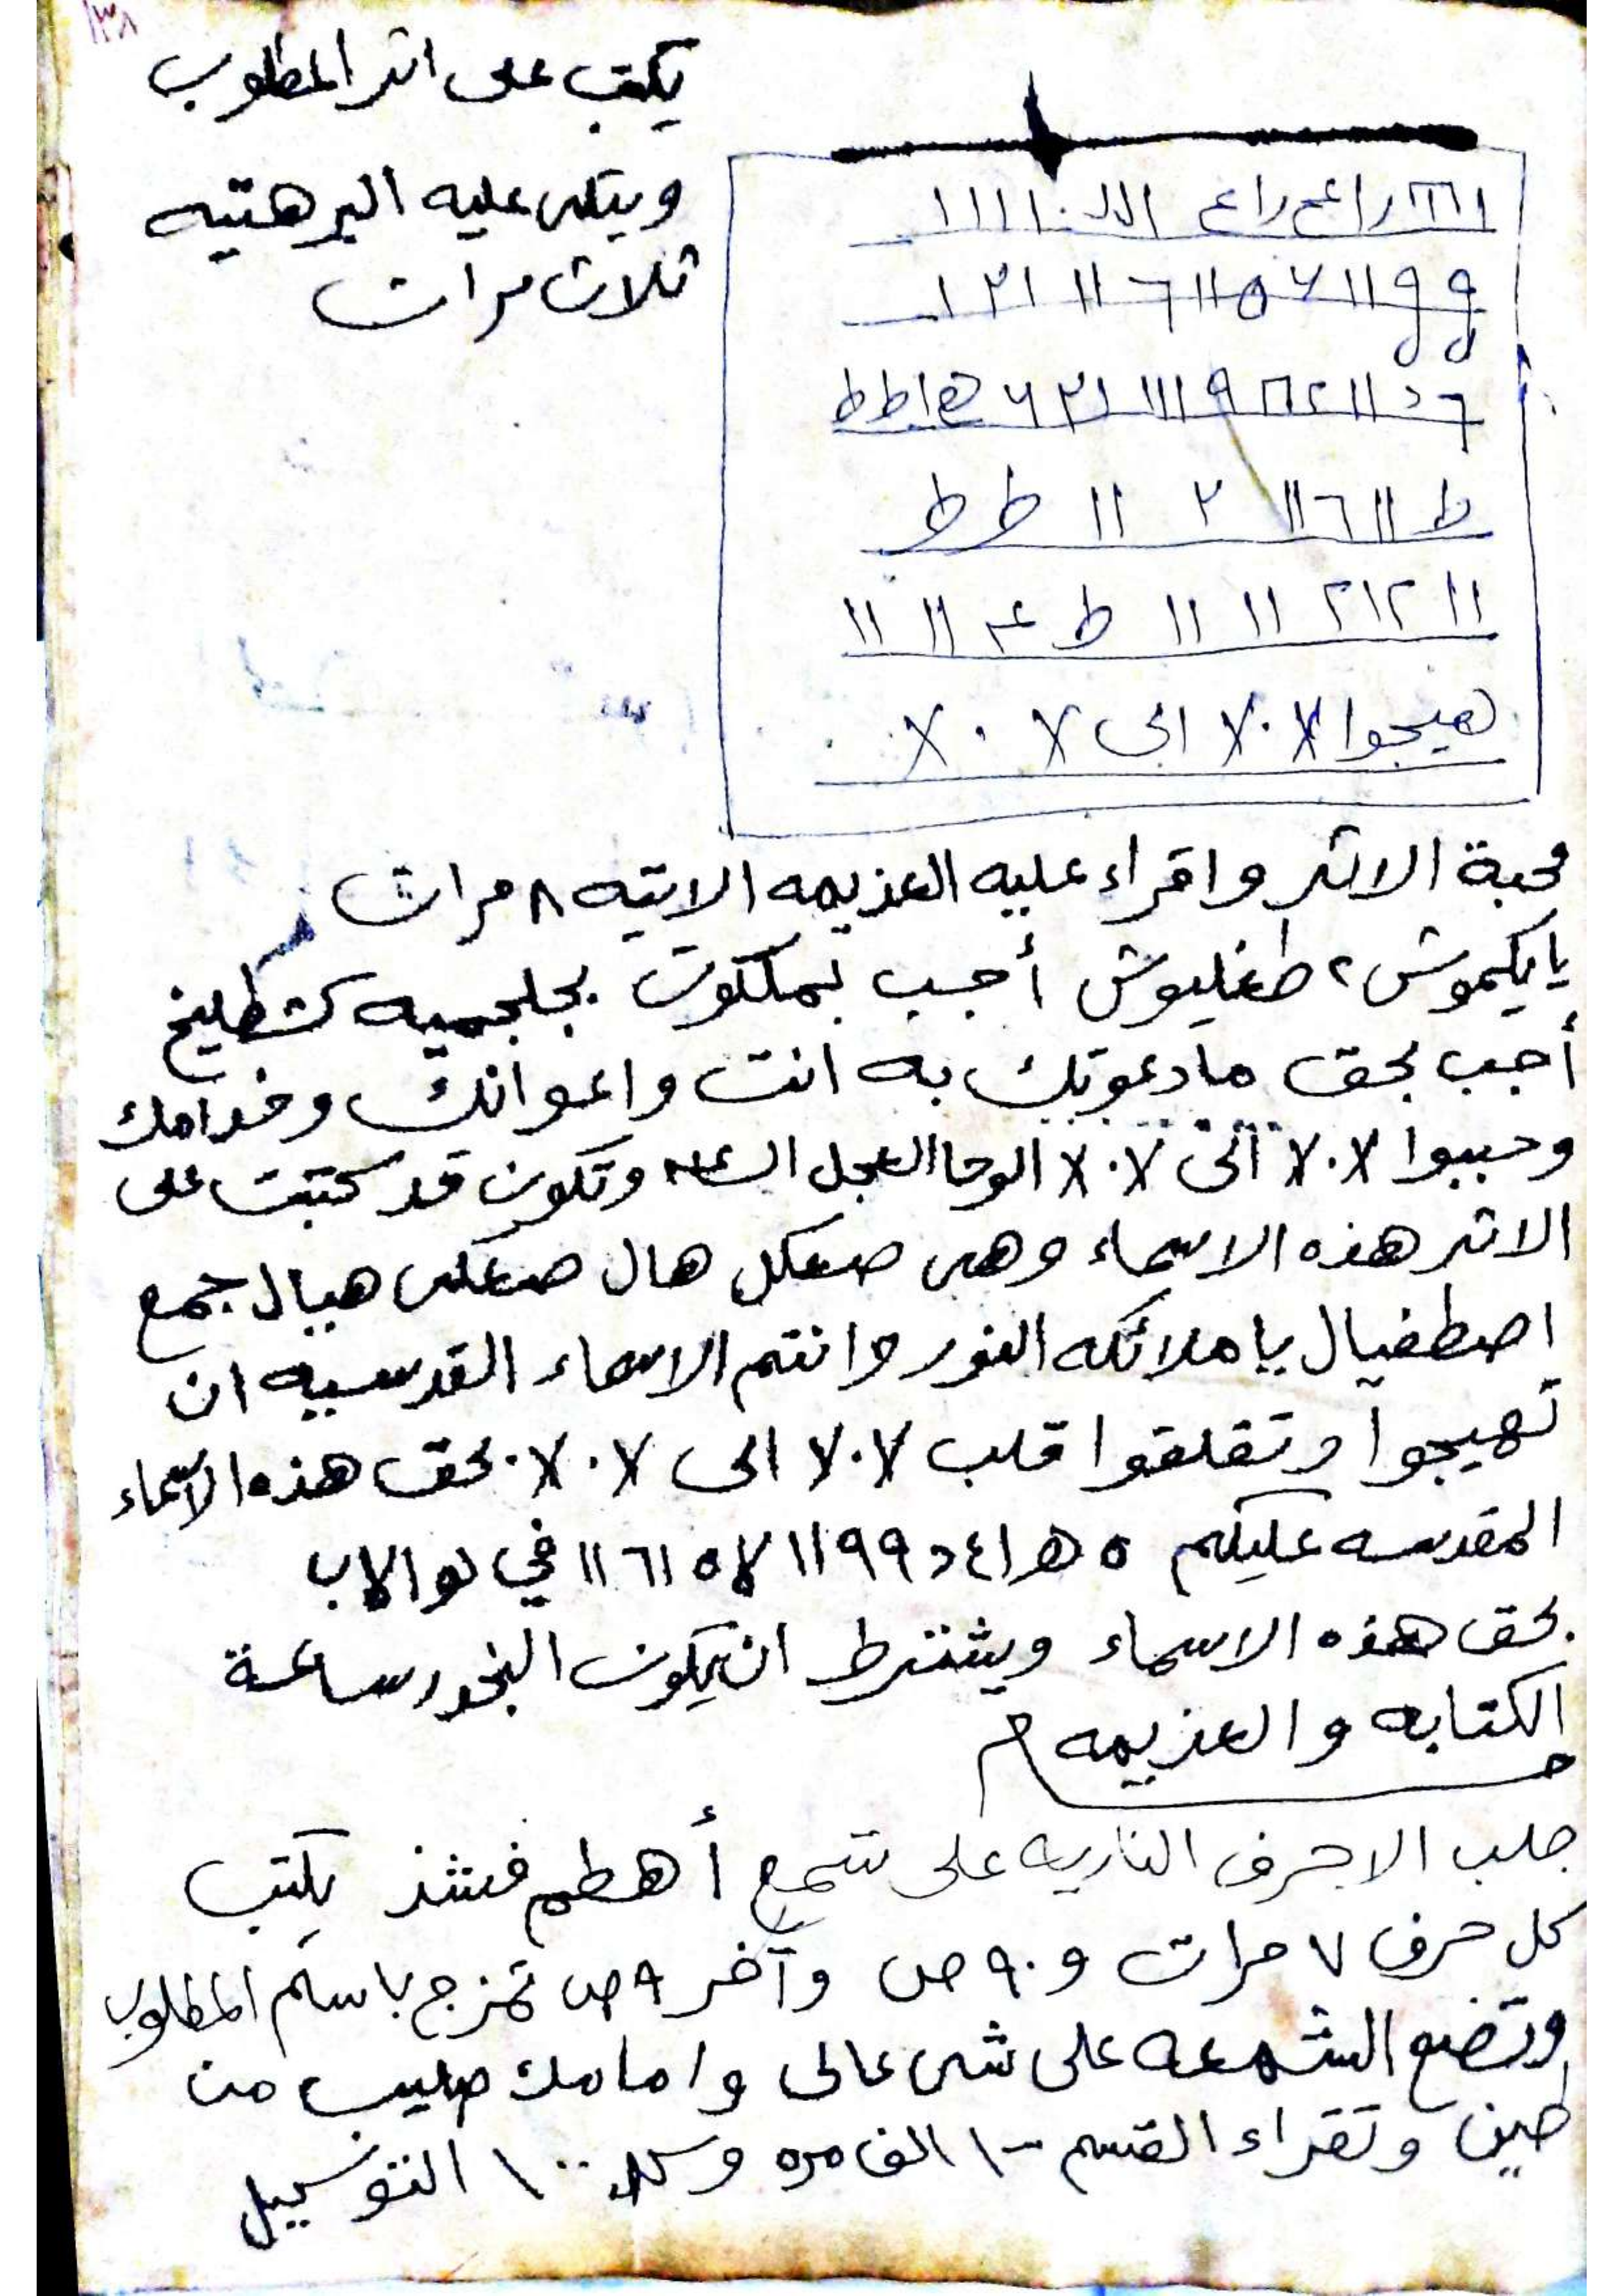 ١٣٨
يكتب على اثر المطلوب
ويتلى عليه البرهتيه
ثلاث مرات
١١١١
٩٩ ١١ ٧ ٥ ١١ ٦ ١١ ١٣١
ط ١١ ٦ ١١ ٢ ١١ ط ط
١١ ٢١٢ ١١ ١١ ط ١١ ١١
هيجوا ٧٠٧ الى ٧٠٧
محبة الاثر واقراء عليه العزيمه الاتيه ٨ مرات
يا يكموش ٢ طغليوش أجب بملكوت بجلجميه كشطليخ
أجب بحق ما دعوتك به انت واعوانك وخدامك
وحببوا ٧٠٧ الى ٧٠٧ الوحا العجل وتكون قد كتبت على
الاثر هذه الاسماء وهى صعكل هال صعكى هيال جمع
اصطفيال يا ملائكه النور وانتم الاسماء القدسيه ان
تهيجوا وتقلقوا قلب ٧٠٧ الى ٧٠٧ بحق هذه الاسماء
المقدسه عليكم ٥ ه ٩٩ ١١ ١١ ٦١ ١١ في
بحق هذه الاسماء ويشترط ان يكون البخور ساعة
الكتابه والعزيمه م
جلب الاحرف الناريه على شمع أهطم فشذ يكتب
كل حرف ٧ مرات و ٩٠ ص وآخر ٩ ص تمزج باسم المطلوب
وتضع الشمعه على شى عالى وامامك صليب من
طين وتقراء القسم الف مره ١٠٠ التوكيل